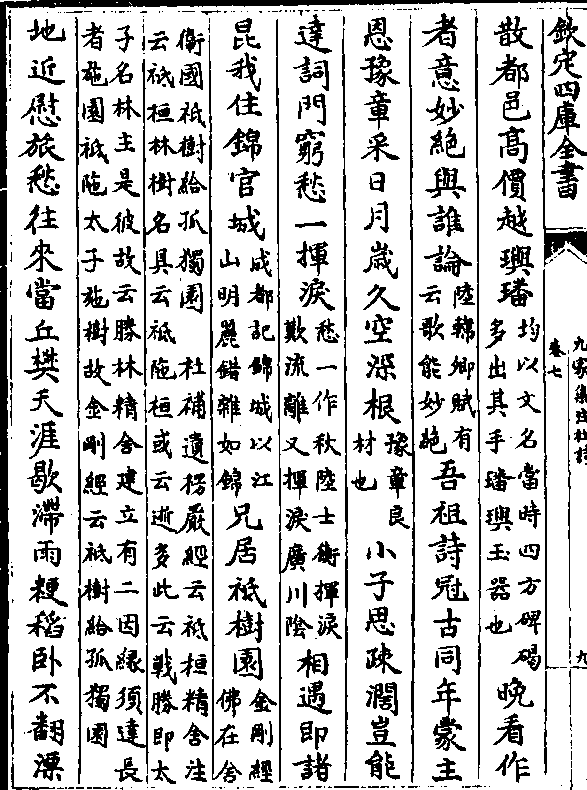 欽定四庫全書
九家集注杜詩
卷七
九
散都邑髙價越璵璠
均以文名當時四方碑碣
多出其手璠璵玉器也
晚看作
者意妙絶與誰論
陸韓卿賦有
云歌能妙絶
吾祖詩冠古同年蒙主
恩豫章采日月嵗久空深根
豫章良
材也
小子思疎濶豈能
達詞門窮愁一揮淚
愁一作秋陸士衡揮淚
歎流離又揮淚廣川隂
相遇即諸
昆我住錦官城
成都記錦城以江
山明麗錯雜如錦
兄居祗樹園
金剛經
佛在舍
衛國祗樹給孤獨園 杜補遺楞嚴經云祗桓精舍注
云祗桓林樹名具云祗陁桓或云逝多此云戰勝即太
子名林主是彼故云勝林精舍建立有二因縁須達長
者施園祗陁太子施樹故金剛經云祗樹給孤獨園
地近慰旅愁往來當丘樊天涯歇滯雨粳稻臥不翻漂